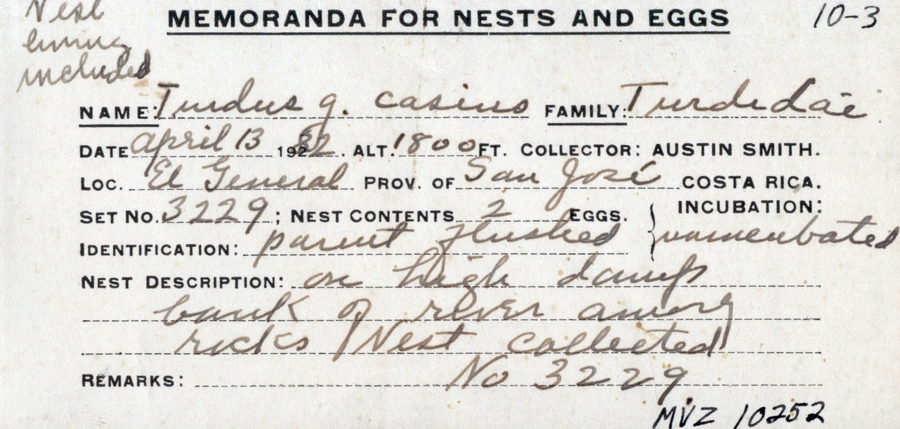 Nest
lining
included
MEMORANDA FOR NESTS AND EGGS 10-3
NAME: Turdus g. casius FAMILY: Turdidae
DATE April 13 1932. ALT. 1800 FT. COLLECTOR: AUSTIN SMITH.
LOC. El General PROV. OF San José COSTA RICA.
SET NO. 3229; NEST CONTENTS 2 EGGS. INCUBATION:
IDENTIFICATION: parent flushed unincubated
NEST DESCRIPTION: on high damp
bank of river among
rocks Nest collected
REMARKS: No 3229
MVZ 10252